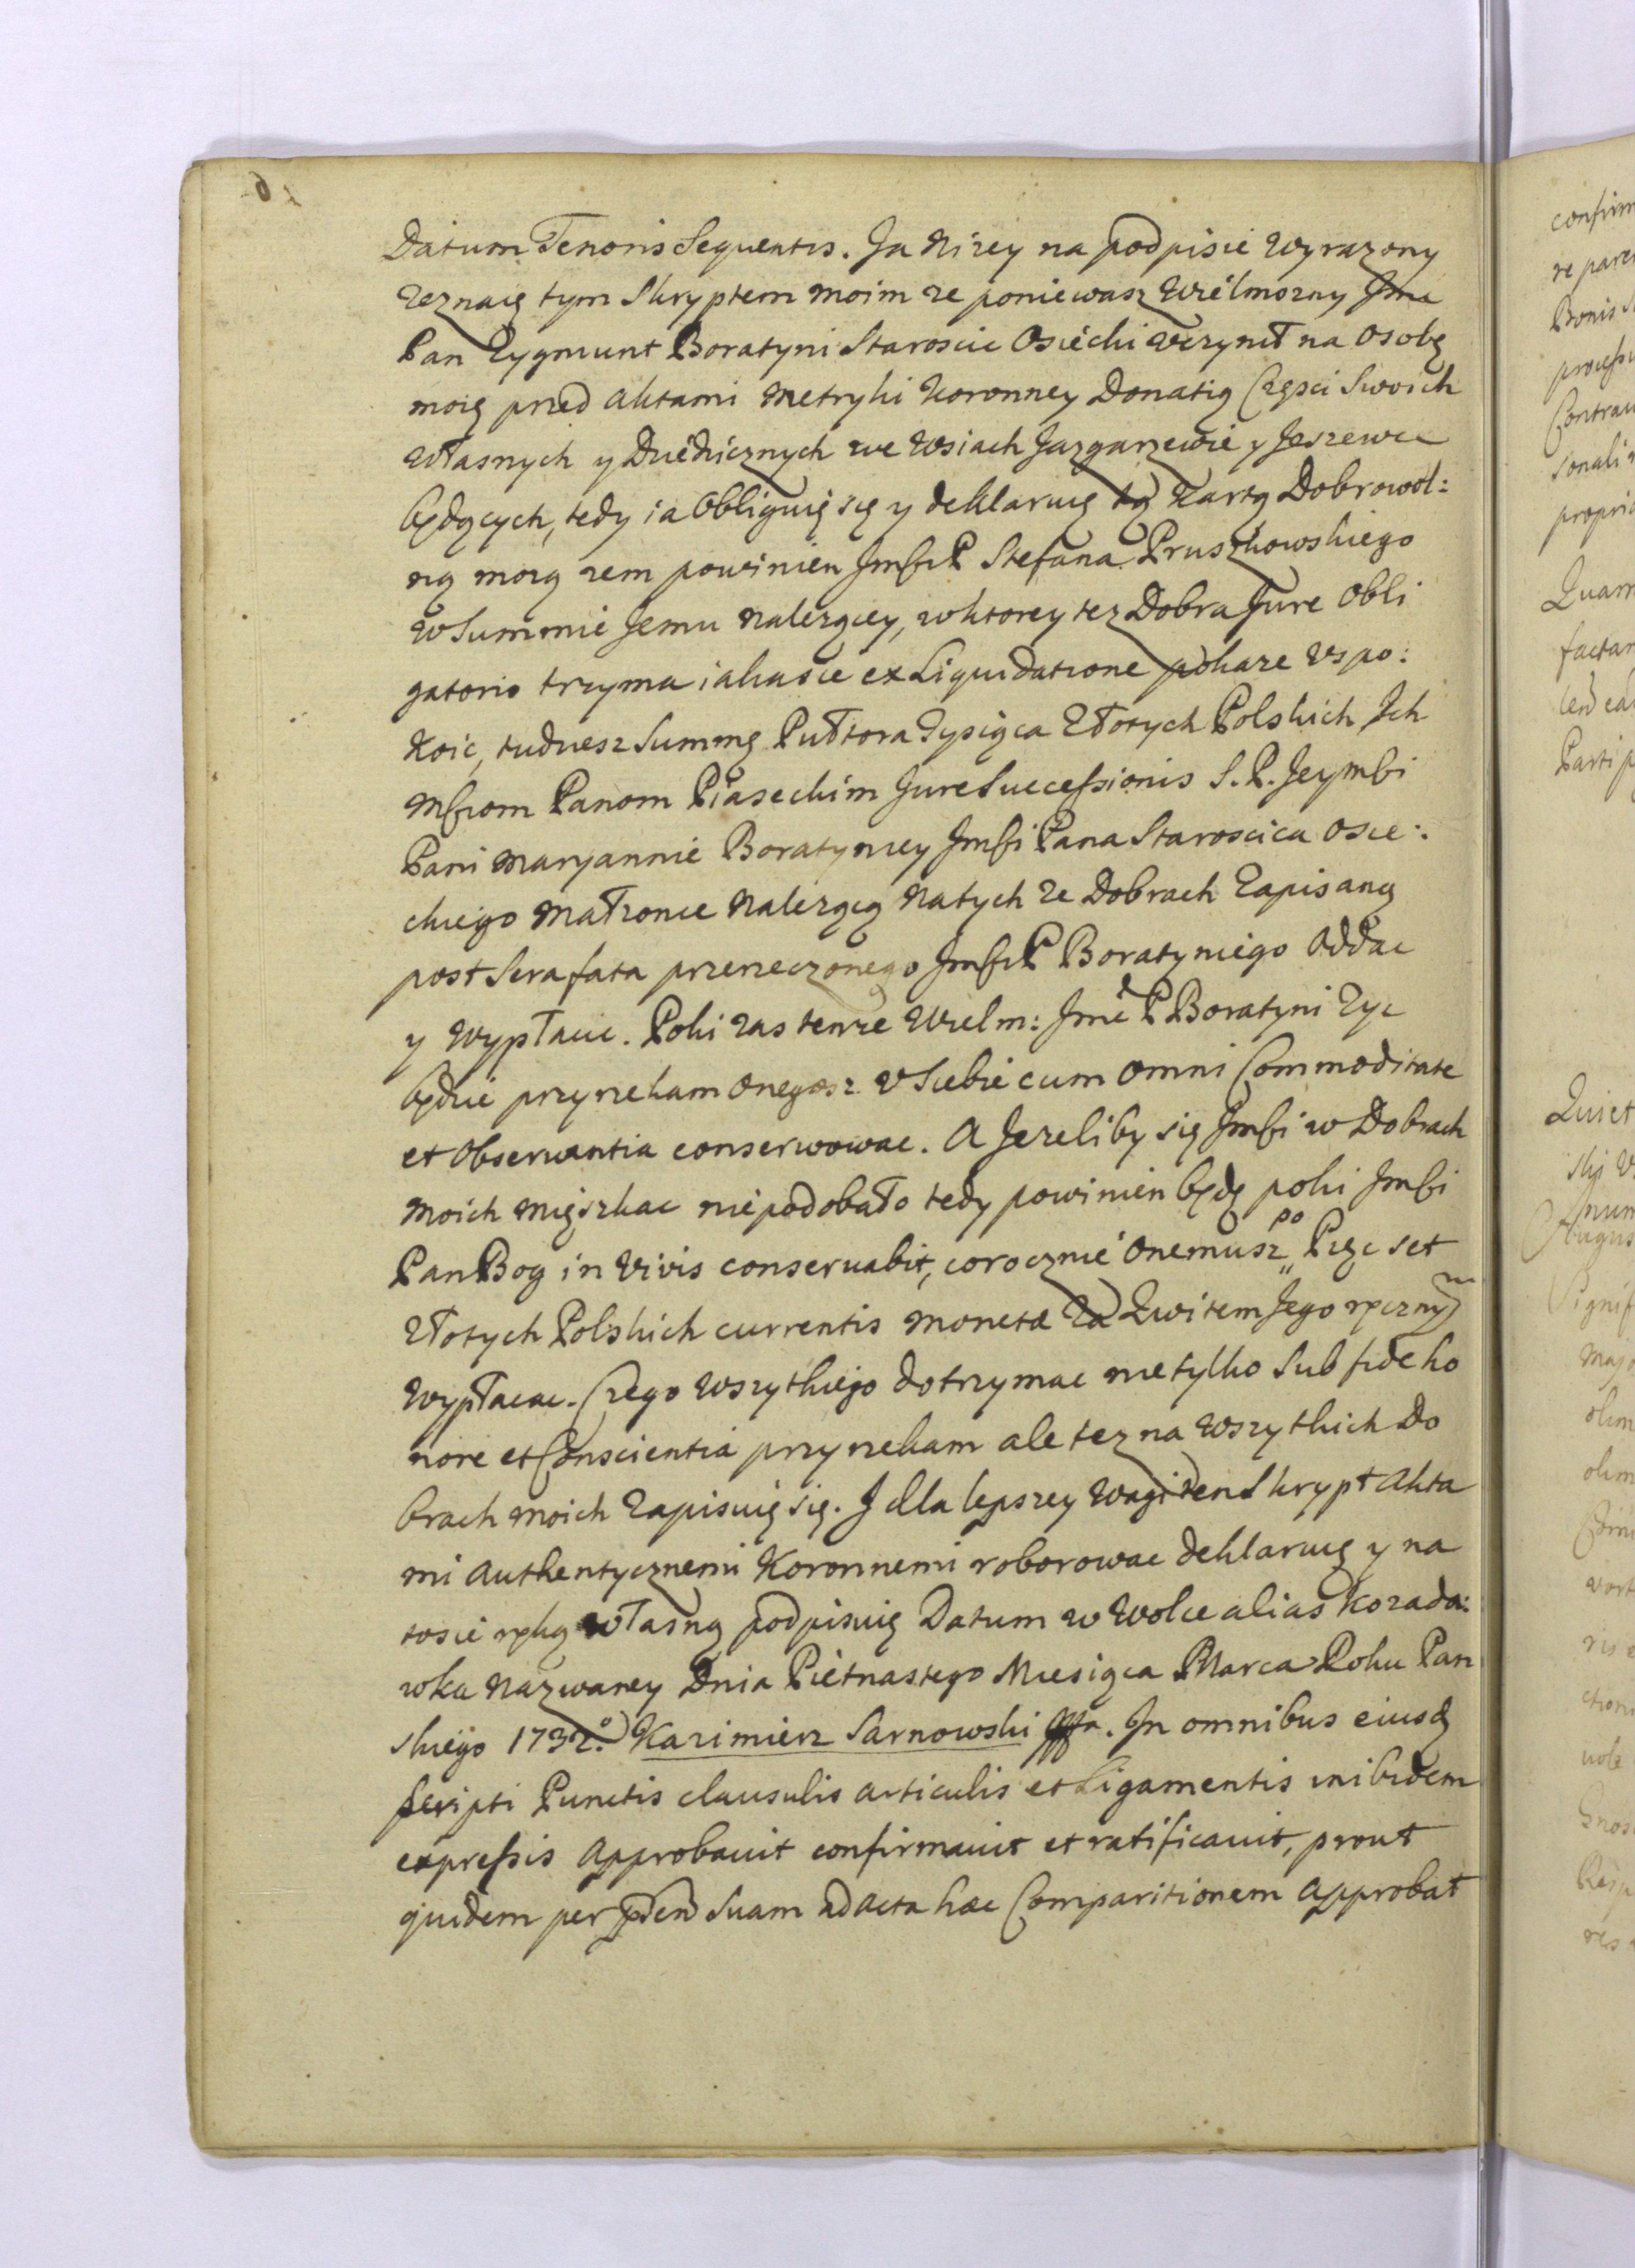 Datum Tenoris Sequentis. Ja Nizey na podpisie Wyrazony
Zeznaię tym Skryptem moim ze poniewasz Wielmozny Jmc
Pan Zygmunt Boratyni Starosćic Osiecki uczynił na Osobę
moię przed Aktami Metryki Koronney Donatią Częsci Swoich
Własnych y Dziedzicznych we Wsiach Jazgarzewie y Jeszewce
będących, tedy ia Obliguię się y deklaruię tą Kartą Dobrowol:
ną moią zem powinien Jmsci P Stefana Pruszkowskiego
w Summie Jemu Nalezącey, w ktorey tez Dobra Jure Obli
gatorio trzyma iakasie ex Liquidatione pokaze Uspo:
Koic, tudziesz Summę Pułtora Tysiąca Złotych Polskich Ich
Msciom Panom Piaseckim Jure Successionis S. P. Jeymsci
Pani Maryannie Boratyniey Jmsci Pana Staroscica Osie:
ckiego Małzonce Nalezącą Natych ze Dobrach Zapisaną
post Sera fata przerzeczonego Jmsci P Boratyniego Oddac
y Wypłacic. Poki zas tenze Wielm: Jmc P Boratyni Zyc
będzie przyrzekam Onegosz U Siebie cum Omni Commoditate
et Observantia conserwowac. A Jezeliby się Jmsci w Dobrach
Moich Mięszkac niepodobało tedy powinien będę poki Jmsci
Pan Bog in Vivis conservabit, corocznie Onemusz po Pięc set
Złotych Polskich currentis Moneta Za Kwitem Jego ręcznym
Wypłacac. Czego Wszytkiego dotrzymac nietylko Sub fide ho
nore et Conscientia przyrzekam ale tez na Wszytkich Do
brach Moich Zapisuię się. J dla lepszey Wagi ten Skrypt Akta
mi Authentycznemi Koronnemi roborowac deklaruię y na
tosie ręką własną podpisuię Datum w Wolce alias Kozado:
wka Nazwaney Dnia Pietnastego Miesiąca Marca Roku Pan
skiego 1732o. Kazimierz Sarnowski Mpa. In omnibus eiusd
scripti Punctis clausulis articulis et Ligamentis inibidem
expressis Approbavit confirmavit et ratificavit, prout
quidem per pntem Suam ad Acta haec Comparitionem Approbat